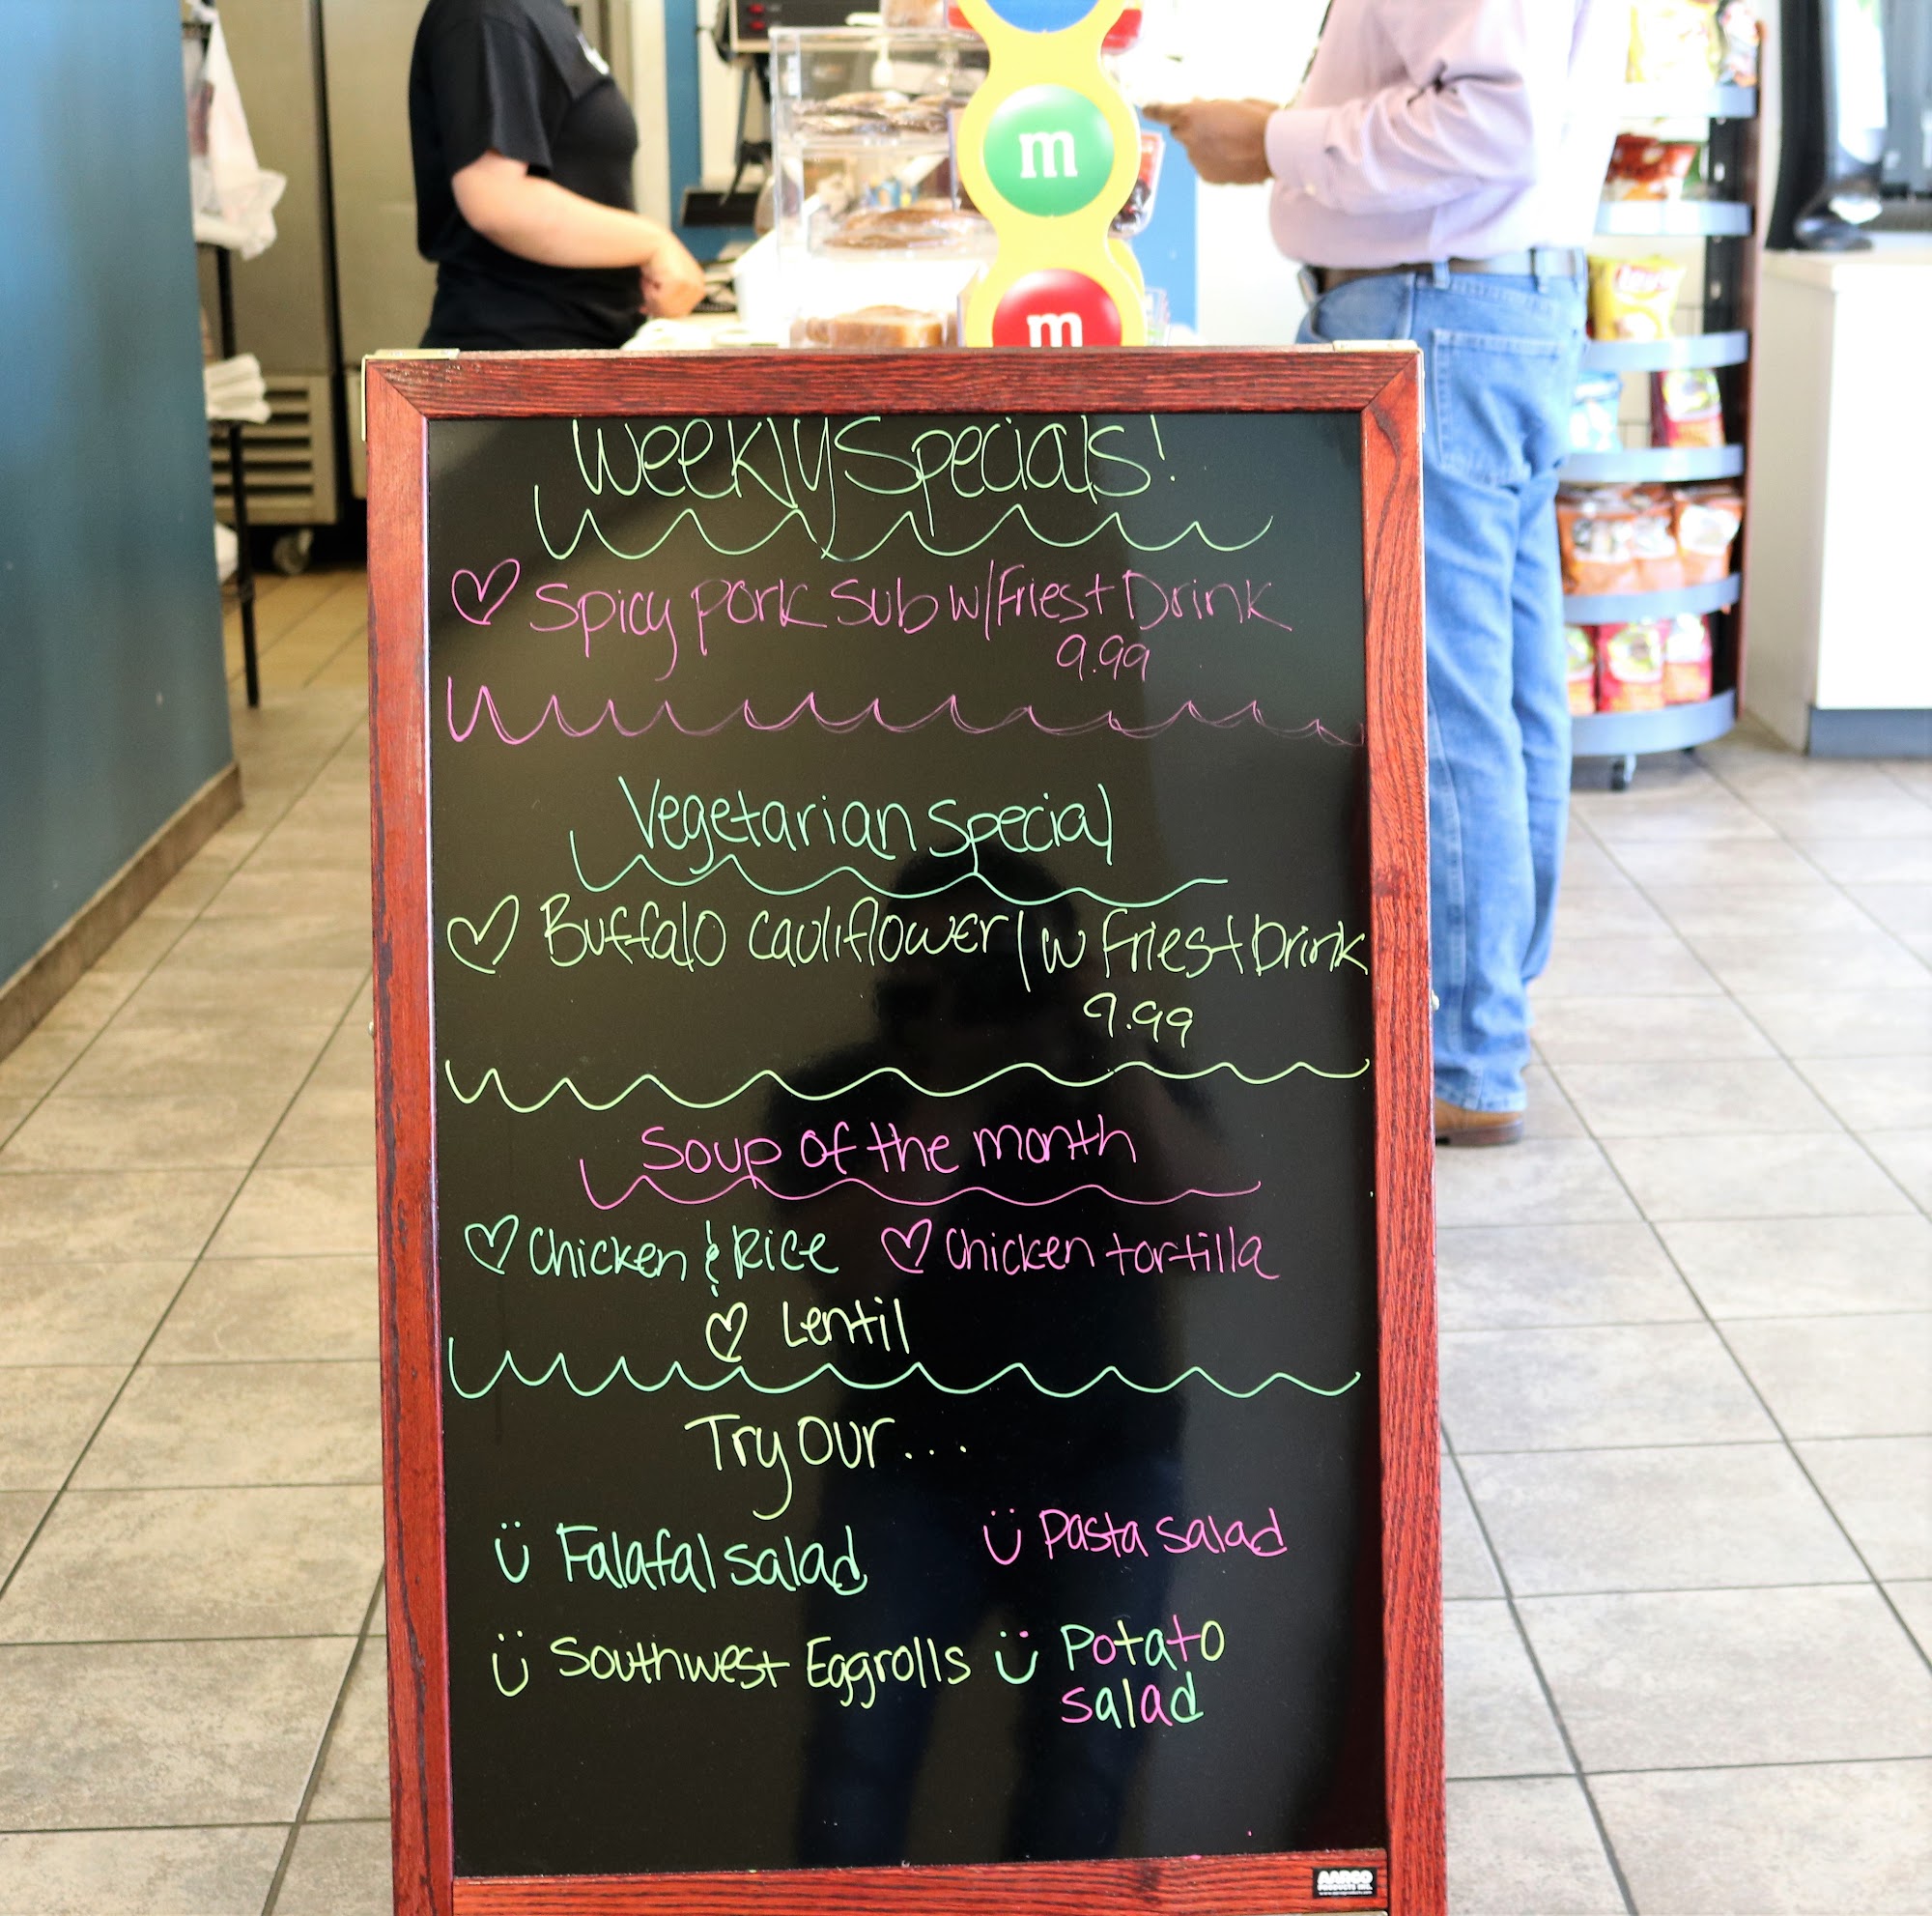 m
m
Weekly Specials!
Spicy pork sub w/Fries + Drink
9.99
Vegetarian special
Buffalo cauliflower/w Fries + Drink
9.99
Soup of the month
Chicken & Rice
Chicken tortilla
Lentil
Try our...
Falafal salad
Pasta salad
Southwest Eggrolls
Potato
salad
AARCO